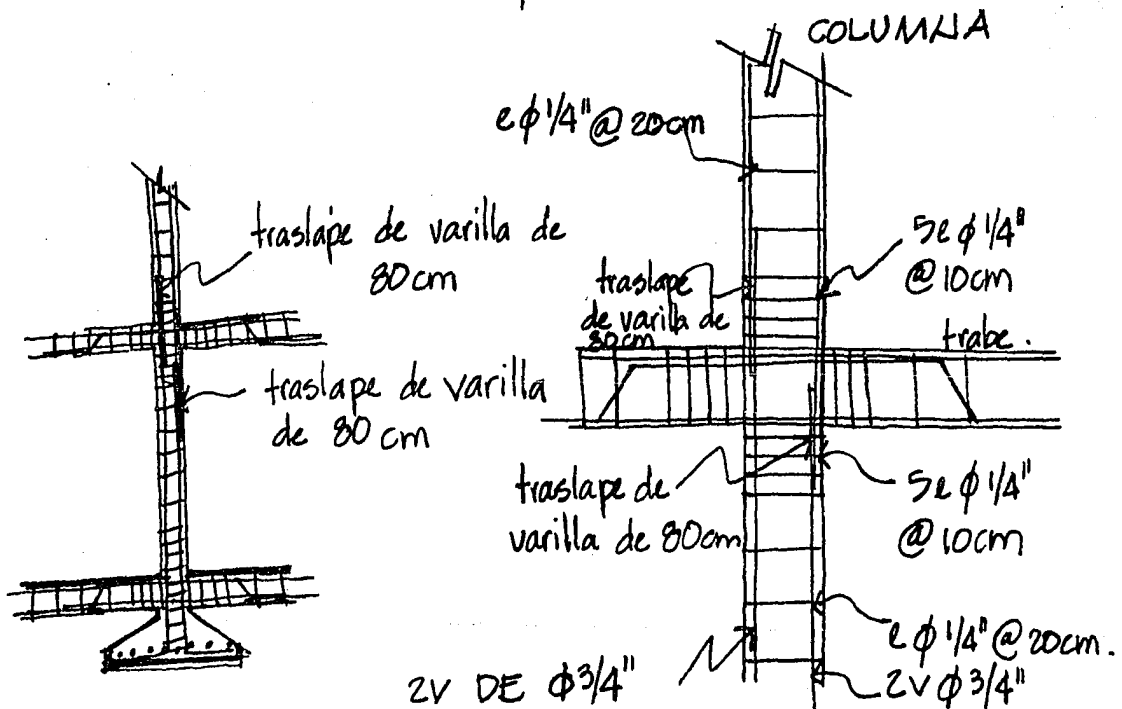 COLUMNA
e ϕ 1/4" @ 20cm
traslape de varilla de
80cm
5e ϕ 1/4"
@ 10cm
traslape
de varilla de
80cm
trabe.
traslape de varilla
de 80 cm
traslape de
varilla de 80cm
5e ϕ 1/4"
@ 10cm
e ϕ 1/4" @ 20cm.
2V DE ϕ 3/4"
2V ϕ 3/4"